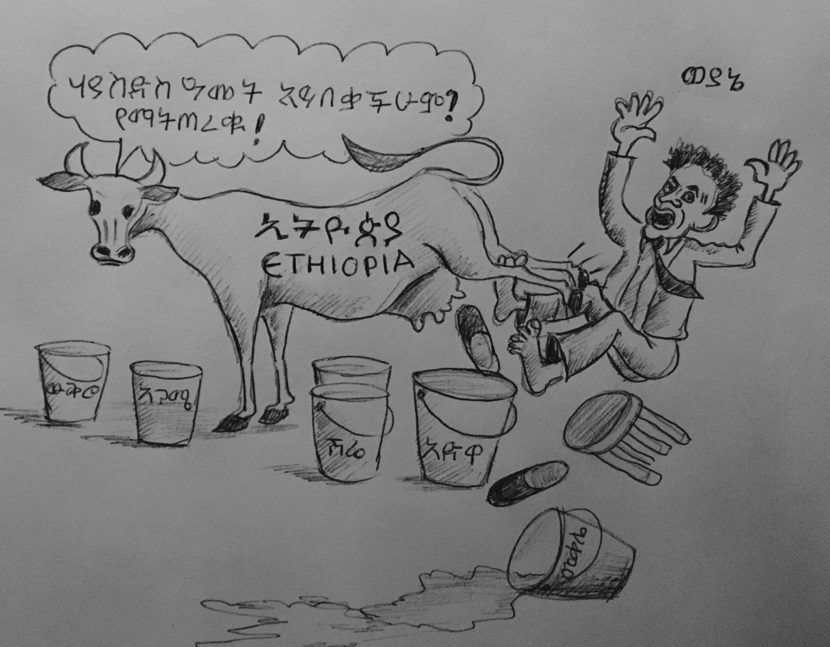 ሃያ ስድስ ዓመት አይበቃችሁም?
የማትጠረቁ!
ወያኔ
ኢትዮጵያ
ETHIOPIA
ውቅሮ
አጋሜ
ሽሬ
አድዋ
መቀሌ